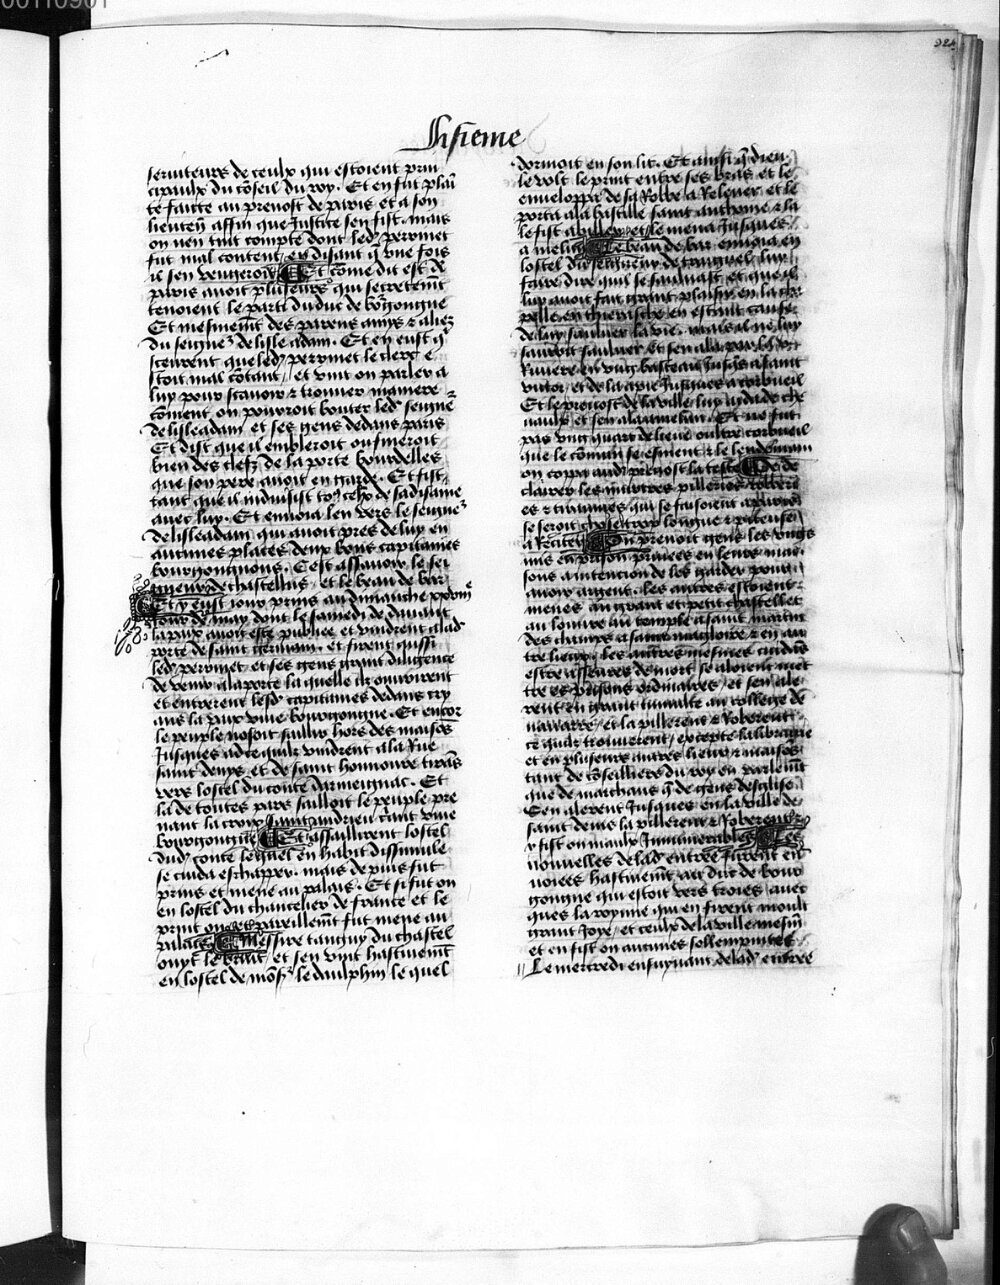 00110901
324
serviteurs de ceulx qui estoient prin
cipaulx du cõseil du roy. Et en fut plai
te faicte au prevost de paris et a son
lieuteñ affin que Justice sen fist. mais
on nen tint compte dont led' perrinet
fut mal content en disant q̃ une fois
il sen vengeroit Et cõme dit est de
paris avoit plusieurs qui secretemẽt
tenoient le parti du duc de bõgongne
Et mesmemẽt des parens amys et aliez
du seignr̃ de lisle adam. Et en eust q̃
sceurent que led' perrinet le clerc e
stoit mal cõtant / et vint on parler a
luy pour scavoir et trouver maniere
cõment on pourroit bouter led' seignr̃
de lisleadam et ses gens dedans paris
Et dist que il embleroit ou fineroit
bien des clefz de la porte bourdelles
que son pere avoit en garde. Et fist
tant que il induisist to9 ceulx de sa disaine
avec luy. Et envoia len vers le seignr̃
de lisleadam qui avoit pres de luy en
aucunes places deux bons capitaines
bourgongnons. Cest assavoir le sei
gneur de chastellus / et le beau de bar
Et y eust jour prins au dimanche xxviiiẽ
Jour de may dont le samedi de davant
la paix avoit este publiee et vindrent a lad'
porte de saint germain. et firent aussi
led' perrinet et ses gens grant diligence
de venir a la porte la quelle ilz ouvrirent
et entrerent lesd' capitaines dedans cry
ans la paix vive bourgongne. Et encor
le peuple nosoit saillir hors des maisõs
Jusques ad ce quilz vindrent a la Rue
saint denys et de saint honnoure tirãs
vers lostel du conte darmeignac. Et
la de toutes pars sailloit le peuple pre
nant la croix saint andrieu criant vive
bourgongne Et assaillirent lostel
dud' conte lequel en habit dissimule
se cuida eschapper. mais depuis fut
prins et mene au palais. Et si fut on
en lostel du chancelier de france et le
print on et pareillemẽt fut mene au
palais Messire tanguy du chastel
ouyt le bruit / et sen vint hastivemẽt
en lostel de mõsr̃ le daulphin le quel
dormoit en son lit. Et ainsi q̃ dieu
le volt le print entre ses bras et le
enveloppa de sa Robbe a Relever et le
porta a la bastille saint anthoine et la
le fist abiller et le mena Jusques
a meleũ Le beau de bar envoia en
lostel du seigneur de
faire dire quil se sauvast et que il
luy avoit fait grant plaisir en la cha
pelle en
de luy sauver la vie. mais il ne luy
sauroit sauver Et sen ala par la
Riviere en ung basteau Jusq̃s a saint
victor et de la a pie Jusques a corbueil
Et le prevost de la ville luy aida de che
vaulx et sen ala a melun. Et ne fut
pas ung quart de lieue oultre corbueil
que le cõmun se esmeut et le lendemain
on coppa aud' prevost la teste De de
clairer les meurtres pilleries robberi
es et tirannies qui se faisoient a paris
se seroit chose trop longue et piteuse
a Reciter On prenoit gens les ungs
mis en prison privees en leurs mai
sons a intencion de les garder pour
avoir argent. les autres estoient
menes au grant et petit chastellet
au louvre au temple a saint martin
des champs a saint magloire et en au
tre lieux. les autres mesmes cuidãs
estre asseures de mort se aloient met
tre es prisons ordinaires. et sen ale
rent en grant tumulte au college de
navarre / et la pillerent et Roberent
ce quilz trouverent / excepte la librairie
et en plusieurs autres lieux et maisons
tant de cõseilliers du roy en parlemẽt
que de marchans q̃ de gens desglise
Sen alerent Jusques en la ville de
saint denis la pillerent et Roberent et
y fist on maulx Innumerables Les
nouvelles de lad' entree furent en
voiees hastivemẽt au duc de bour
gongne qui estoit vers troies avec
ques la royne qui en firent moult
grant Joye / et ceulx de la ville mesm̃
et en fist on aucunes sollempnites
Le mercredi ensuyvant de lad' entree